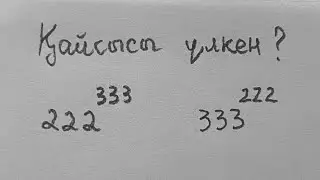 Қайсысы үлкен ?
222³³³ 333²²²